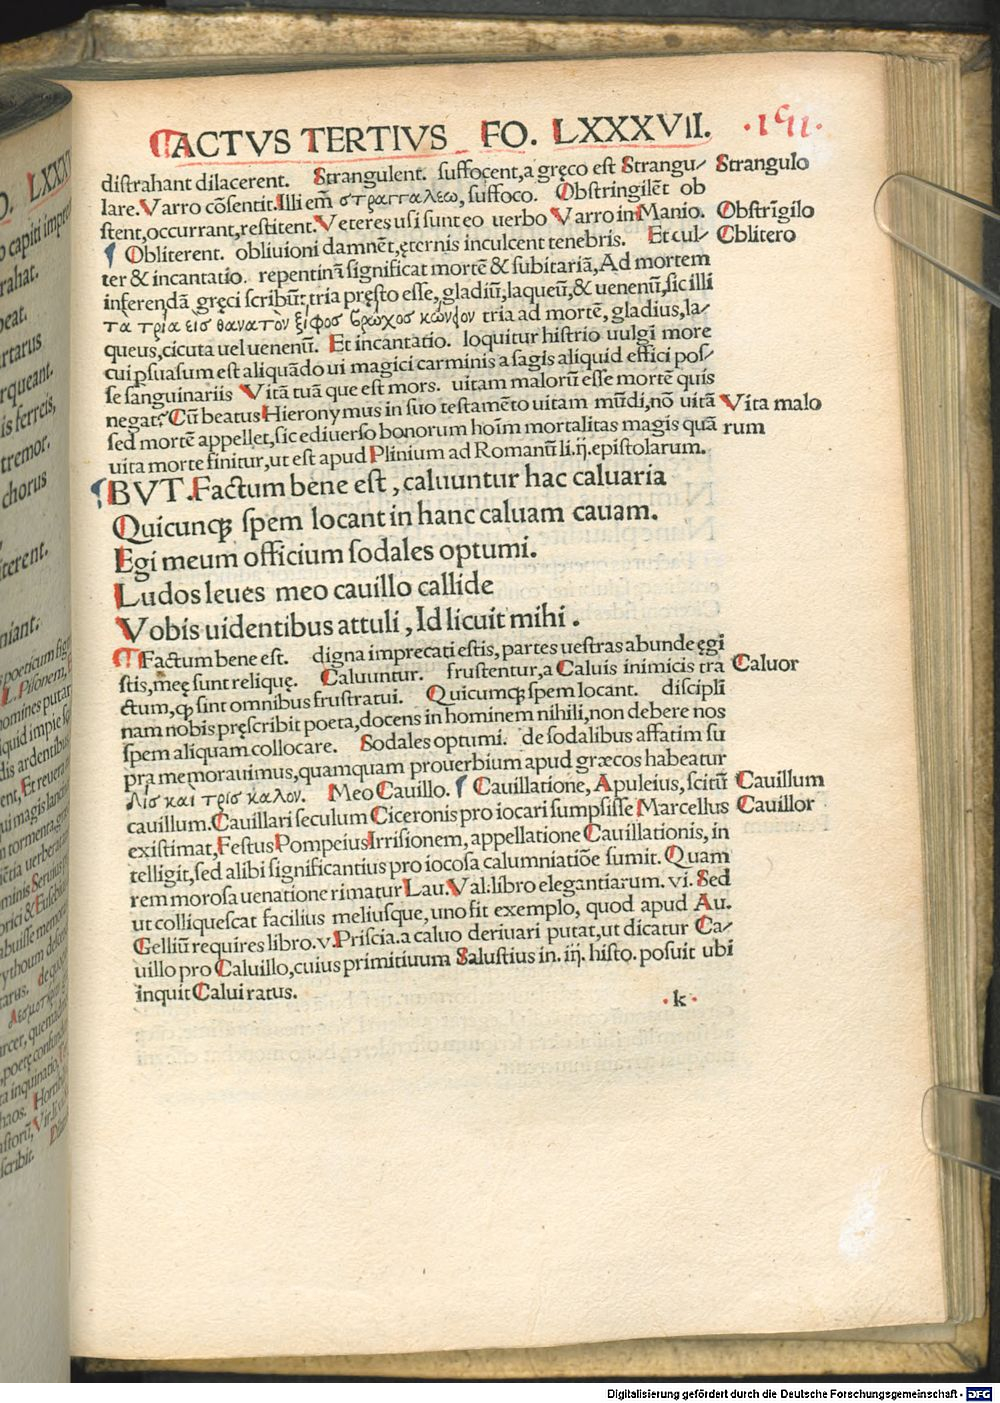 ACTVS TERTIVS FO. LXXXVII.
distrahant dilacerent. Strangulent. suffocent, a gręco est Strangu/ Strangulo
lare. Varro cõsentit. Illi em̃ στραγγαλεω, suffoco. Obstringilẽt ob
stent, occurrant, restitent. Veteres usi sunt eo uerbo Varro in Manio. Obstrĩgilo
¶ Obliterent. obliuioni damnẽt, ęternis inculcent tenebris. Et cul/ Oblitero
ter & incantatio. repentinã significat mortẽ & subitariã, Ad mortem
inferendã gręci scribũt tria pręsto esse, gladiũ, laqueũ, & uenenũ, sic illi
τα τρια εισ θανατον ξιφοσ βρωχοσ κωνϳον tria ad mortẽ, gladius, la-
queus, cicuta uel uenenũ. Et incantatio. loquitur histrio uulgi more
cui psuasum est aliquãdo ui magici carminis a sagis aliquid effici pos/
se sanguinariis Vitã tuã que est mors. uitam malorũ esse mortẽ quis
negat? Cũ beatus Hieronymus in suo testamẽto uitam mũdi, nõ uitã Vita malo
sed mortẽ appellet, sic ediuerso bonorum hoĩm mortalitas magis quã rum
uita morte finitur, ut est apud Plinium ad Romanũ li. ij. epistolarum.
¶ BVT. Factum bene est, caluuntur hac caluaria
Quicunq; spem locant in hanc caluam cauam.
Egi meum officium sodales optumi.
Ludos leues meo cauillo callide
Vobis uidentibus attuli, Id licuit mihi.
Factum bene est. digna imprecati estis, partes uestras abunde ęgi
stis, meę sunt reliquę. Caluuntur. frustentur, a Caluis inimicis tra Caluor
ctum, q̃ sint omnibus frustratui. Quicumq; spem locant. discipli
nam nobis pręscribit poeta, docens in hominem nihili, non debere nos
spem aliquam collocare. Sodales optumi. de sodalibus affatim su
pra memorauimus, quamquam prouerbium apud græcos habeatur
Δισ και τρισ καλον. Meo Cauillo. ¶ Cauillatione, Apuleius, scitũ Cauillum
cauillum. Cauillari seculum Ciceronis pro iocari sumpsisse Marcellus Cauillor
existimat, Festus Pompeius Irrisionem, appellatione Cauillationis, in
telligit, sed alibi significantius pro iocosa calumniatiõe sumit. Quam
rem morosa uenatione rimatur Lau. Val. libro elegantiarum. vi. Sed
ut colliquescat facilius meliusque, uno fit exemplo, quod apud Au.
Gelliũ requires libro. v. Priscia. a caluo deriuari putat, ut dicatur Ca/
uillo pro Caluillo, cuius primitiuum Salustius in. iij. histo. posuit ubi
inquit Calui ratus.
.k.
Digitalisierung gefördert durch die Deutsche Forschungsgemeinschaft - DFG